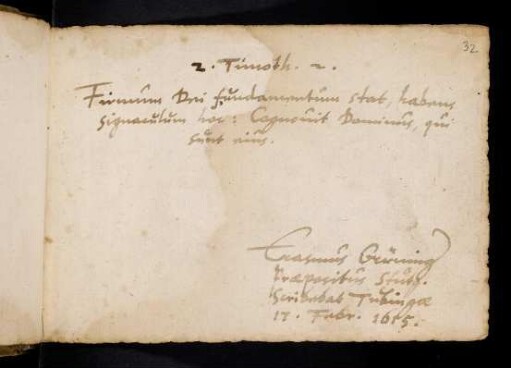 32
2. Timoth. 2.
Firmum Dei fundamentum stat, habens
signaculum hoc: Cognouit Dominus, qui
sunt eius.
Erasmus Grüning
Præpositus Stutg.
Scribebat Tubingæ
17. Febr. 1615.